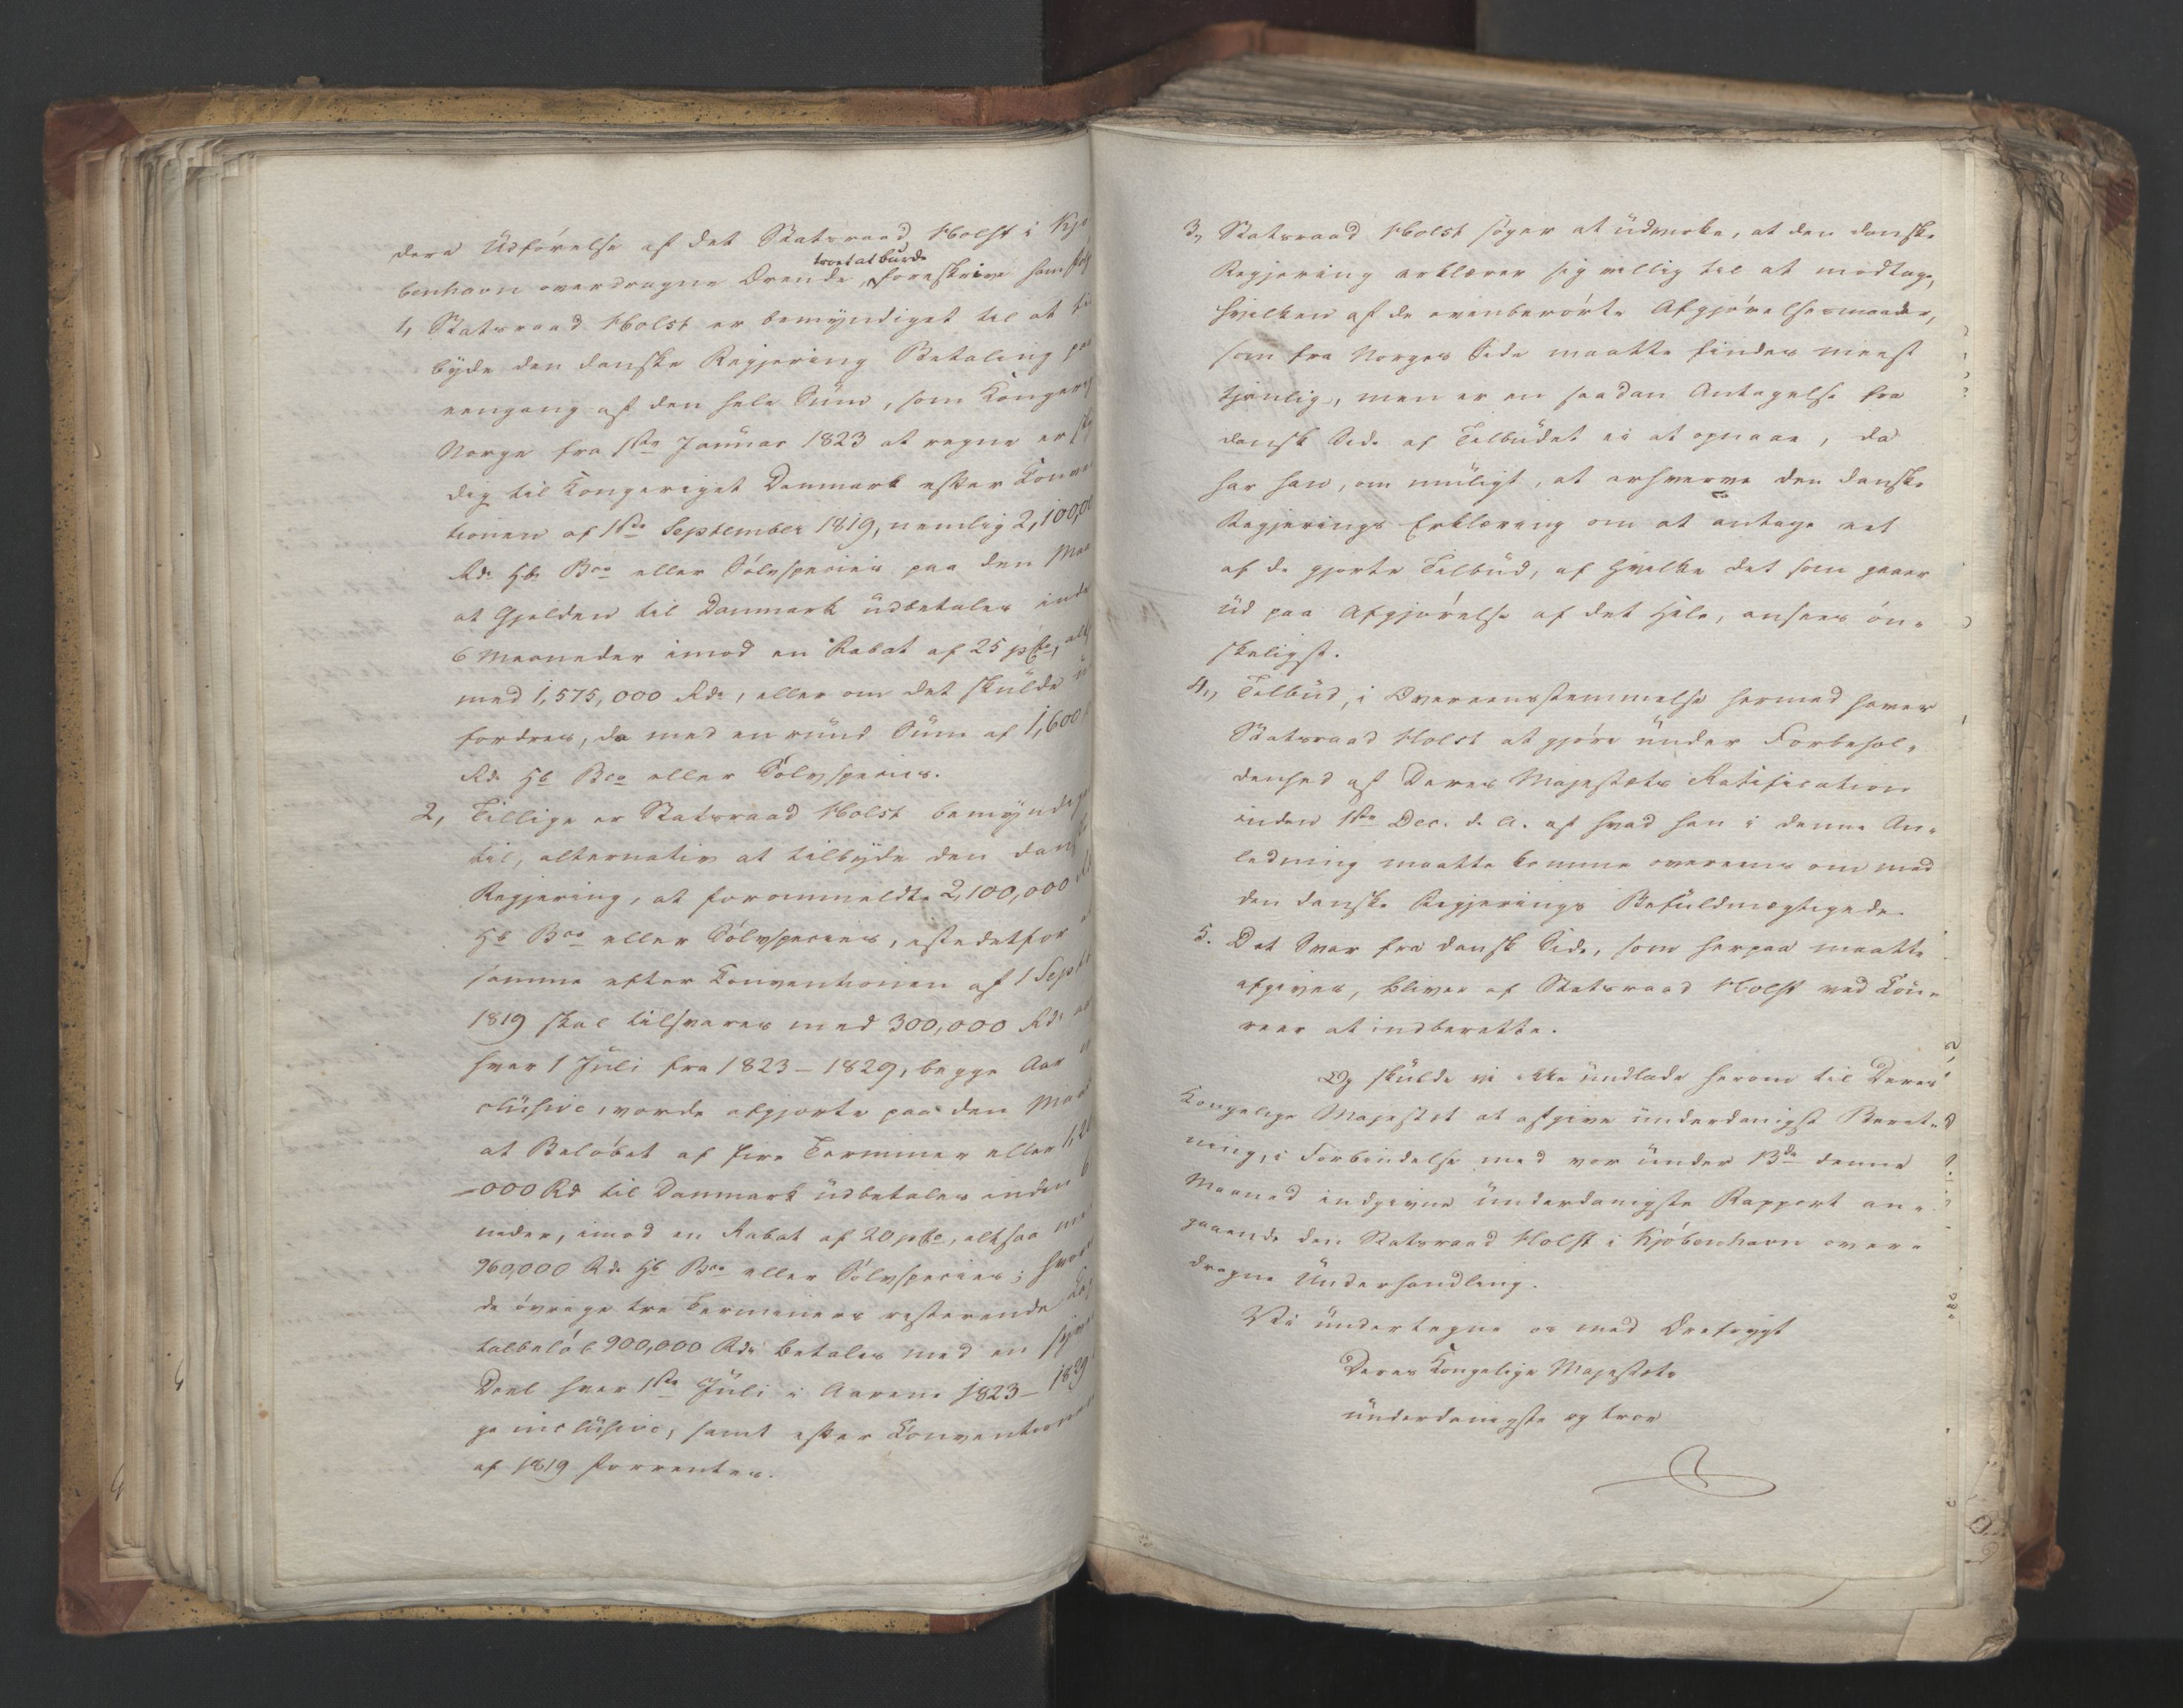 dera Udførelse af det Statsraad Holst i Kjø
troet at burde
benhavn overdragne Ærende, foreskrive ham
1, Statsraad Holst er bemyndiget til at
byde den danske Regjering Betaling paa
eengang af den hele Sum, som Kongerig
Norge fra 1ste Januar 1823 at regne er
dig til Kongeriget Danmark efter Conven
tionen af 1ste September 1819, nemlig 2,100,00
Rdr Hb Bco eller Sølvspecies paa den Maa
at Gjelden til Danmark udbetales inde
6 Maaneder imod en Rabat af 25 pCto, alt
med 1,575,000 Rdr, eller om det skulde
fordres, da med en rund Sum af 1,600
Rdr Hb Bco eller Sølvspecies.
2, Tillige er Statsraad Holst bemyndige
til, alternativ at tilbyde den dansk
Regjering, at forommeldte 2,100,000
Hb Bco eller Sølvspecies, istedetfor
samme efter Conventionen af 1 Sept
1819 skal tilsvares med 300,000 Rdr
hver 1 Juli fra 1823-1829, begge Aar
clusive, vorde afgjorte paa den Maad
at Beløbet af fire Terminer eller 1,20
-000 Rdr til Danmark udbetales inden 6
neder, imod en Rabat af 20 pCto, altsaa me
960,000 Rdr Hb Bco eller Sølvspecies; hvor
de øvrige tre Terminers resterende
talbeløb 900,000 Rdr betales med en syve
Deel hver 1ste Juli i Aarene 1823-1829
ge inclusive, samt efter Conventionen
af 1819 forrentes.
3, Statsraad Holst søger at udvirke, at den danske
Regjering erklærer sig villig til at modtage,
hvilken af de ovenberørte Afgjørelsesmaader,
som fra Norges Side maatte findes meest
tjenlig, men er en saadan Antagelse fra
dansk Side af Tilbudet ei at opnaae, da
har han, om muligt, at erhverve den danske
Regjerings Erklæring om at antage eet
af de gjorte Tilbud, af hvilke det som gaaer
ud paa Afgjørelse af det Hele, ansees øn-
skeligst.
4, Tilbud, i Overeensstemmelse hermed haver
Statsraad Holst at gjøre under Forbehol-
denhed af Deres Majestæts Ratification
inden 1ste Dec. d. A. af hvad han i denne An-
ledning maatte komme overeens om med
den danske Regjerings Befuldmægtigede.
5. Det Svar fra dansk Side, som herpaa maatte
afgives, bliver af Statsraad Holst ved Cou-
reer at indberette.
Og skulde vi ikke undlade herom til Deres
Kongelige Majestæt at afgive underdanigst Beret-
ning, i Forbindelse med vor under 13de denne
Maaned indgivne underdanigste Rapport an-
gaaende den Statsraad Holst i Kjøbenhavn over-
dragne Underhandling.
Vi undertegne os med Ærefrygt
Deres Kongelige Majestæts
underdanigste og troe